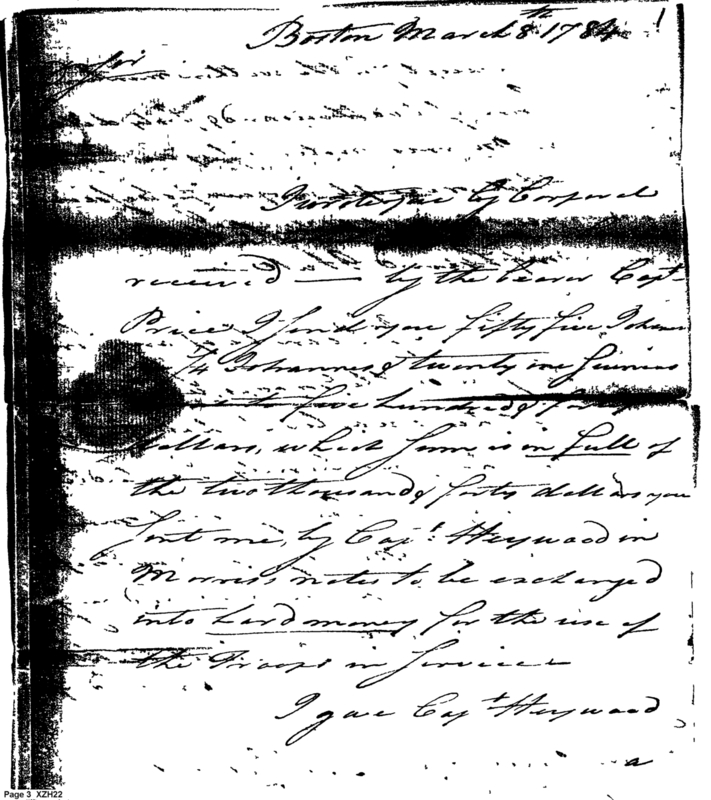 Boston March 8th 1784
Sir
by Corporal
received — by the bearer Capt
Price I send you fifty five Johann
Johannes & twenty one Guineas
five hundred & forty
dollars, which sum is in full of
the two thousand & forty dollars you
sent me, by Capt. Heywood in
Morris's notes to be exchanged
into hard money for the use of
the Troops in Service
I gave Capt Heywood
a
Page 3 XZH22